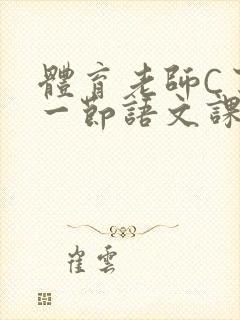 體育老師C
一節語文課
崔雲